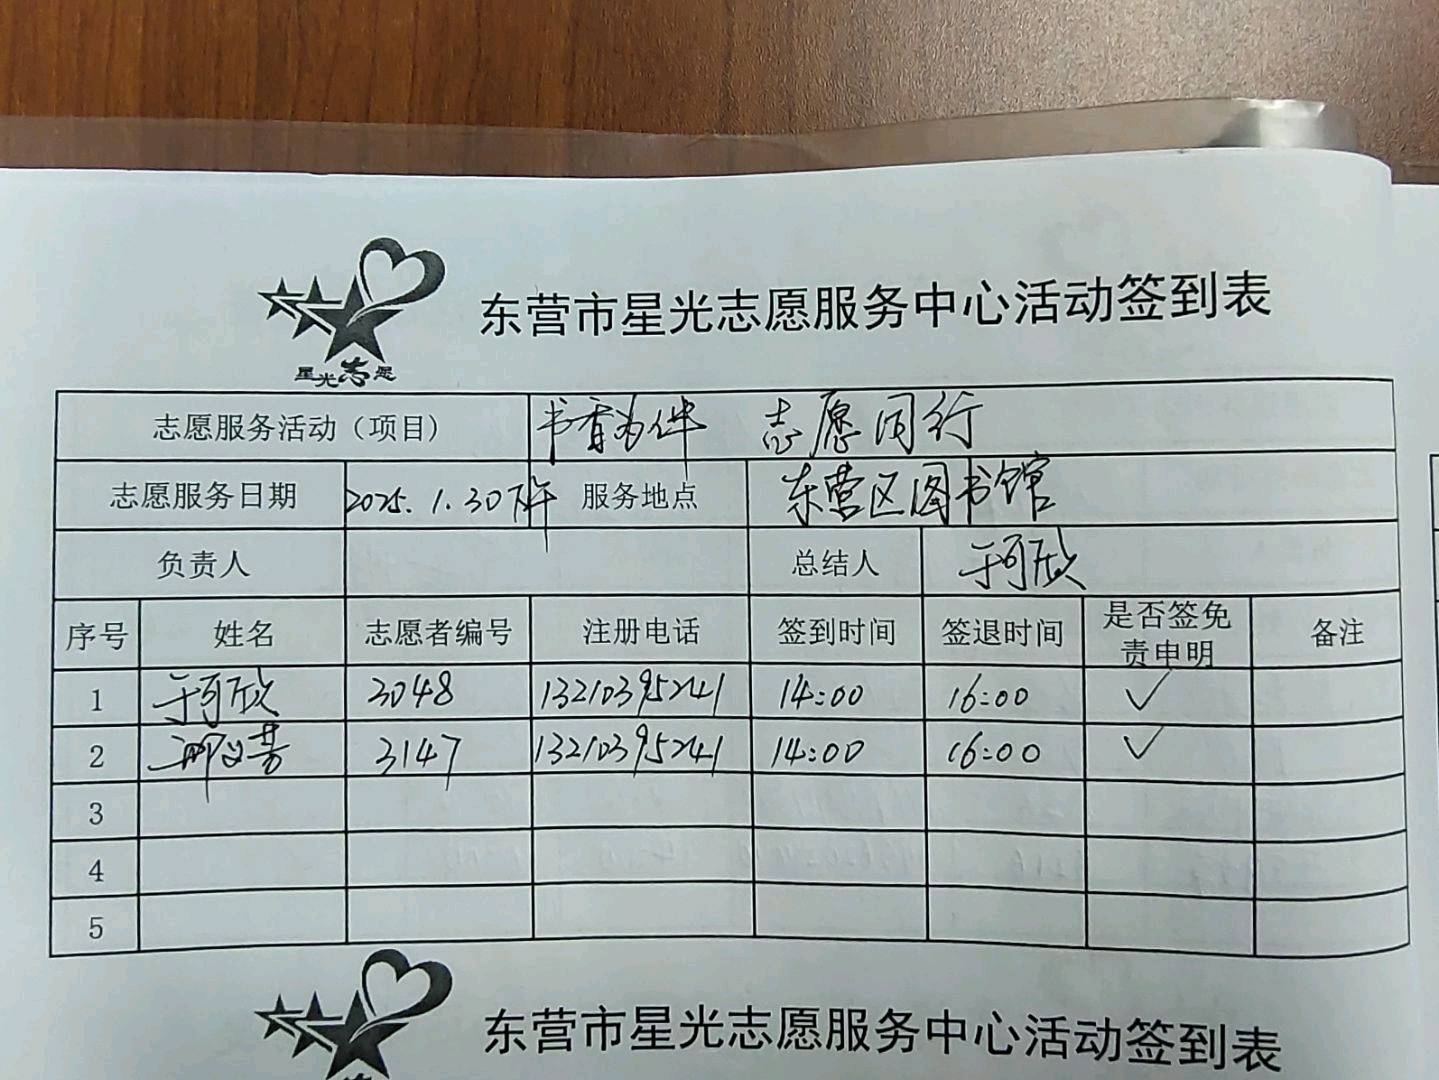 星光志愿
东营市星光志愿服务中心活动签到表
志愿服务活动（项目） 书香为伴 志愿同行
志愿服务日期 2025.1.30下午 服务地点 东营区图书馆
负责人 总结人 于珂欣
序号 姓名 志愿者编号 注册电话 签到时间 签退时间 是否签免责申明 备注
1 于珂欣 3048 13210395241 14:00 16:00 ✓
2 3147 13210395241 14:00 16:00 ✓
3
4
5
东营市星光志愿服务中心活动签到表